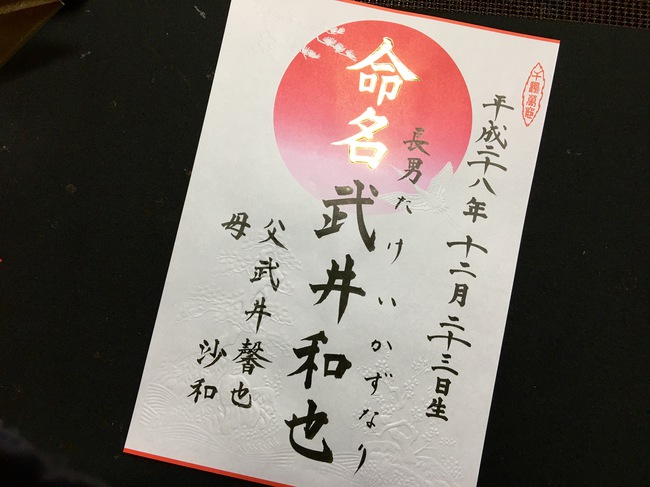 平成二十八年 十二月二十三日生
命名
長男 たけいかずなり
武井和也
父 武井馨也
母 沙和